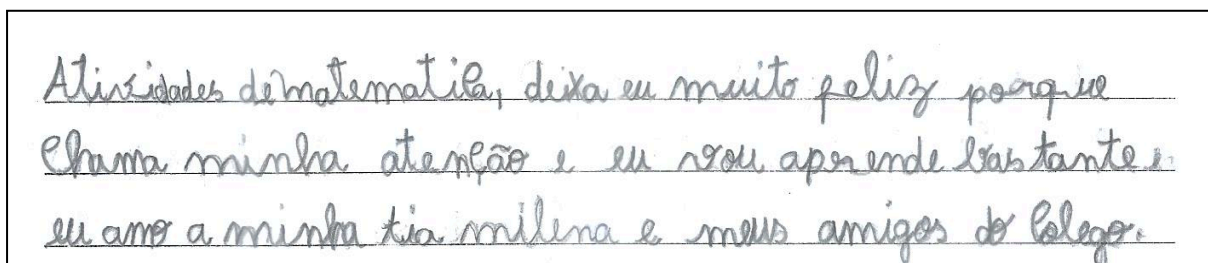 Atividades de matematica, deixa eu muito feliz porque
chama minha atenção e eu vou aprende bastante e
eu amo a minha tia milena e meus amigos do colego.